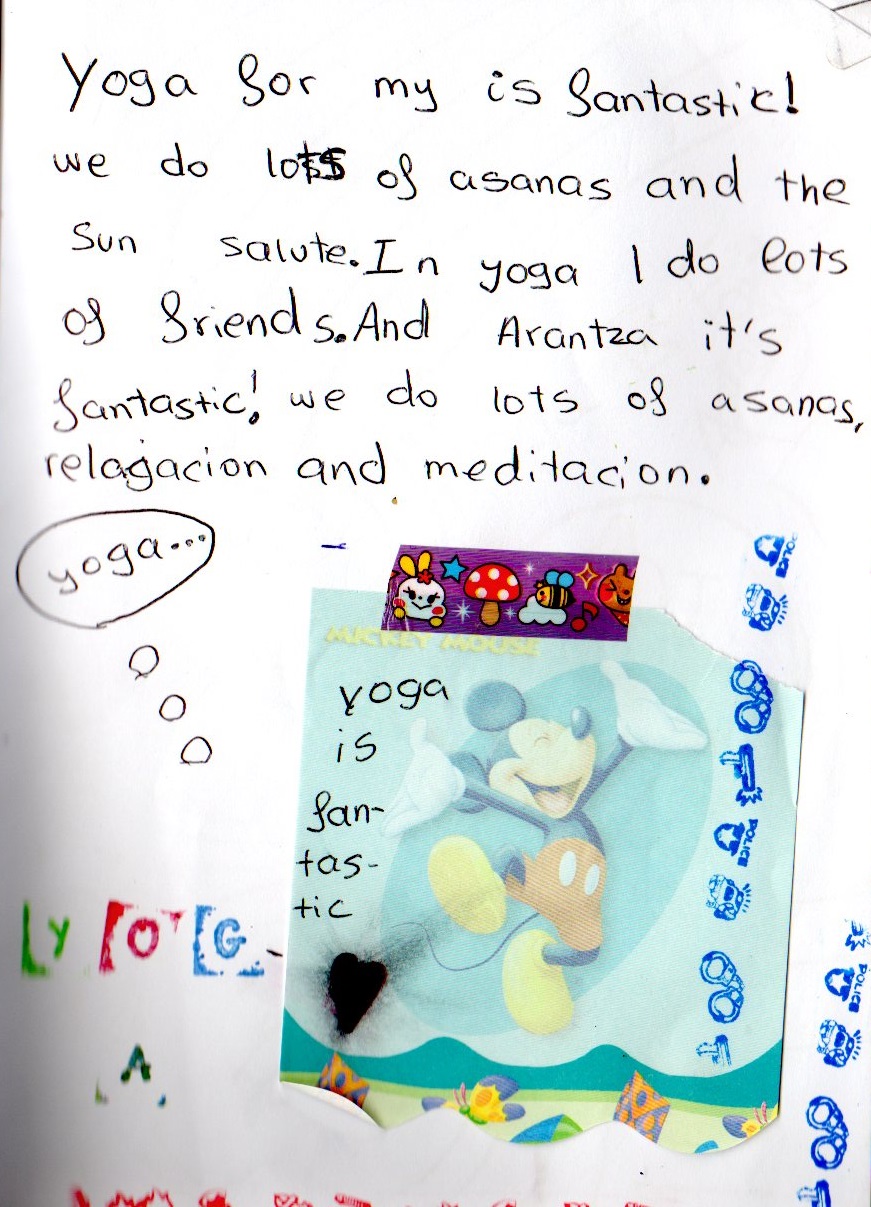 Yoga for my is fantastic!
we do lots of asanas and the
Sun salute. In yoga I do lots
of friends. And Arantza it's
fantastic! we do lots of asanas,
relagacion and meditacion.
yoga...
MICKEY MOUSE
yoga
is
fan-
tas-
tic
Y O G
A
POLICE
POLICE
POLICE